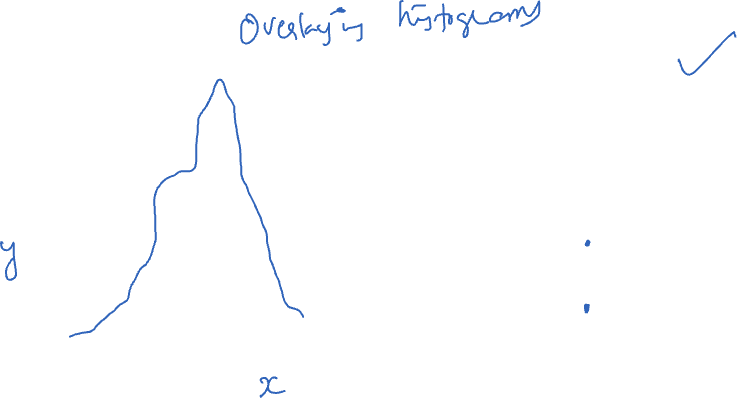 Overlaying histograms
y
x